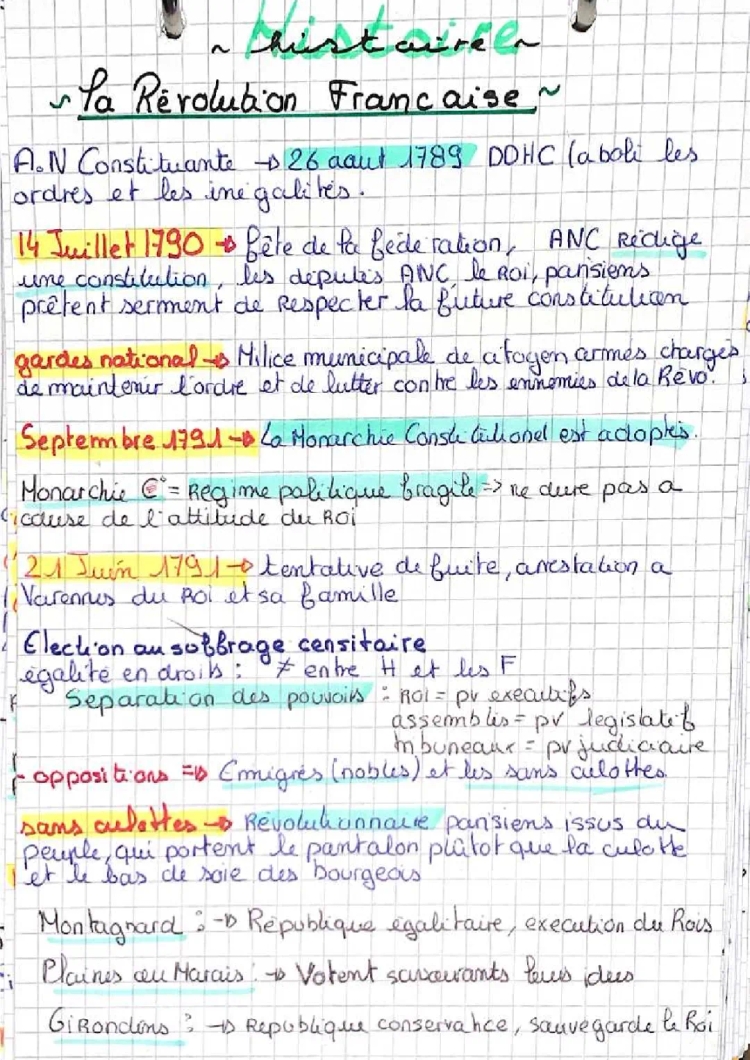 Histoire
~ histoire ~
~ La Révolution Francaise ~
A.N Constituante → 26 aout 1789 DDHC (aboli les
ordres et les inégalités.
14 Juillet 1790 → fête de la fédération, ANC Rédige
une constitution, les députés ANC, le Roi, parisiens
prêtent serment de Respecter la future constitution
gardes national → Milice municipale de citoyen armés chargés
de maintenir l'ordre et de lutter contre les ennemies de la Révo.
Septembre 1791 → La Monarchie Constitutionel est adoptés.
Monarchie C° = Regime politique fragile => ne dure pas a
cause de l'attitude du Roi
21 Juin 1791 → tentative de fuite, arrestation a
Varennes du Roi et sa famille
Election au suffrage censitaire
égalité en droits : ≠ entre H et les F
Séparation des pouvoirs : ROI = pv executifs
assemblés = pv législatif
tribuneaux = pv judiciaire
- oppositions => Emigrés (nobles) et les sans culottes
sans culottes → Révolutionnaire parisiens issus du
peuple, qui portent le pantalon plûtot que la culotte
et le bas de soie des bourgeois
Montagnard : → République égalitaire, execution du Rois
Plaines ou Marais : → Votent suivants leurs idées
Girondins : → Republique conservatrice, sauvegarde le Roi